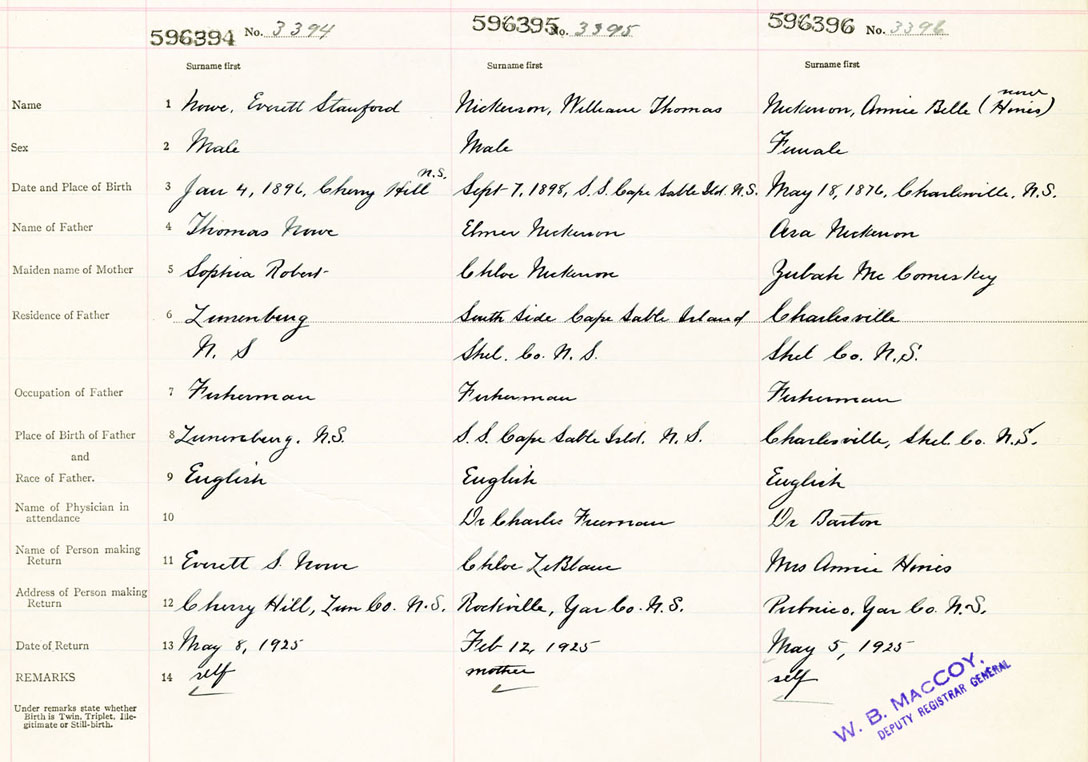 596394 No. 3394 596395 No. 3395 596396 No. 3396
Surname first Surname first Surname first
Name 1 Nowe, Everett Stanford Nickerson, William Thomas Nickerson, Annie Belle (now Hines)
Sex 2 Male Male Female
Date and Place of Birth 3 Jan 4, 1896, Cherry Hill N.S. Sept 7, 1898, S.S. Cape Sable Isld. N.S. May 18, 1876, Charlesville, N.S.
Name of Father 4 Thomas Nowe Elmer Nickerson Asa Nickerson
Maiden name of Mother 5 Sophia Robert Chloe Nickerson Zubah McComiskey
Residence of Father 6 Lunenburg South Side Cape Sable Island Charlesville
N. S Shel. Co. N. S. Shel Co. N.S.
Occupation of Father 7 Fisherman Fisherman Fisherman
Place of Birth of Father 8 Lunenburg. N.S. S.S. Cape Sable Isld. N. S. Charlesville, Shel. Co. N.S.
and
Race of Father. 9 English English English
Name of Physician in attendance 10 Dr Charles Freeman Dr Barton
Name of Person making Return 11 Everett S. Nowe Chloe LeBlanc Mrs Annie Hines
Address of Person making Return 12 Cherry Hill, Lun Co. N.S. Rockville, Yar Co. N.S. Pubnico, Yar Co. N.S.
Date of Return 13 May 8, 1925 Feb 12, 1925 May 5, 1925
REMARKS 14 self mother self
Under remarks state whether
Birth is Twin, Triplet, Ille-
gitimate or Still-birth.
W. B. MACCOY,
DEPUTY REGISTRAR GENERAL